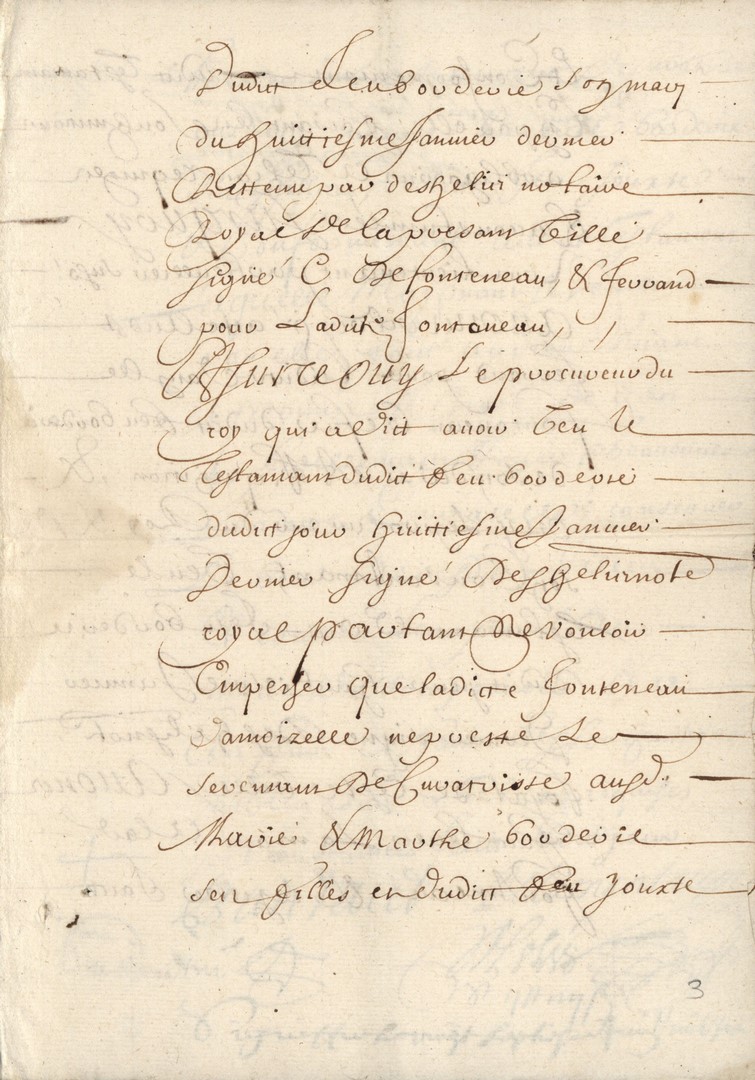 dudict feu bourderie son mary
du huittiesme Janvier dernier
Rettenu par deshelier notaire
Royal de la presant ville
signé C Defonteneau, & ferrand
pour Ladicte fontaneau,
Et sur ce Ouy Le procureur du
roy qui a dict avoir veu le
Testamant dudict feu bourderie
dudict jour huittiesme Janvier
Dernier signé note
royal partant De vouloir
Empescher que ladicte fonteneau
damoizelle ne preste Le
seremant De Curatrisse ausd.
Marie & Marthe bourderie
ses filles et dudict feu Jouxte
3